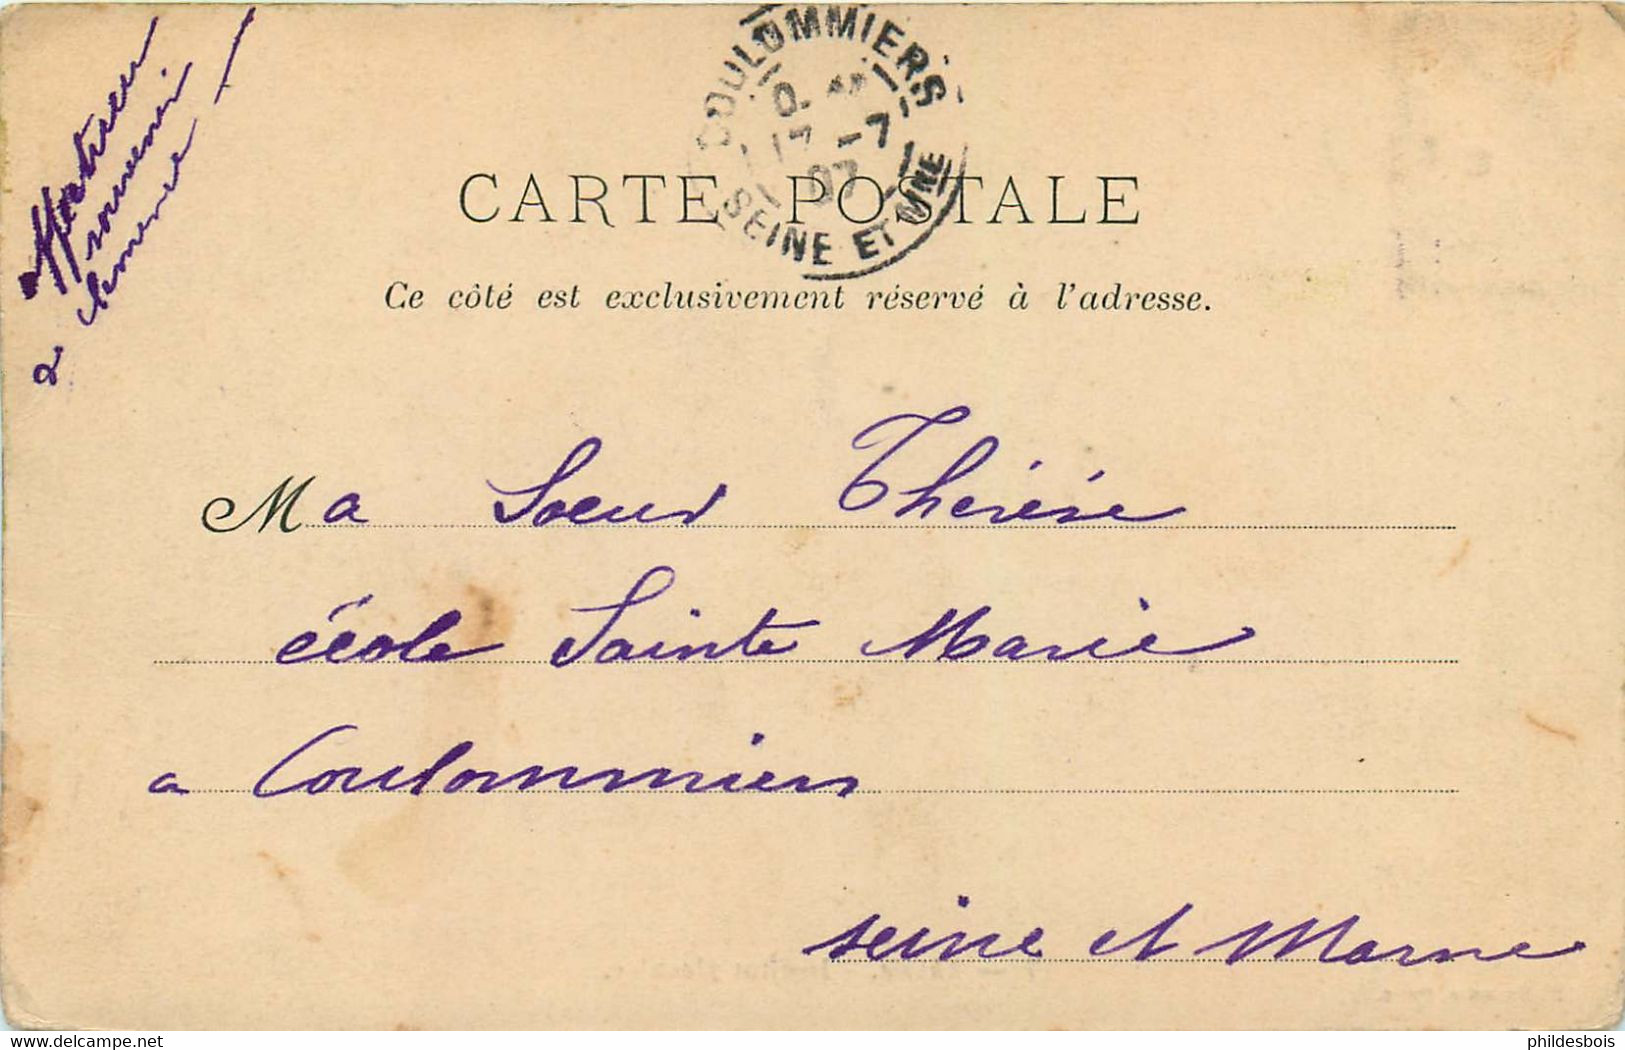 affectueux
souvenir
a clemence
COULOMMIERS
17 -7
07
SEINE ET MNE
CARTE POSTALE
Ce côté est exclusivement réservé à l'adresse.
Ma Soeur Thérése
école Sainte Marie
a Coulommiers
seine et Marne
www.delcampe.net
phildesbois